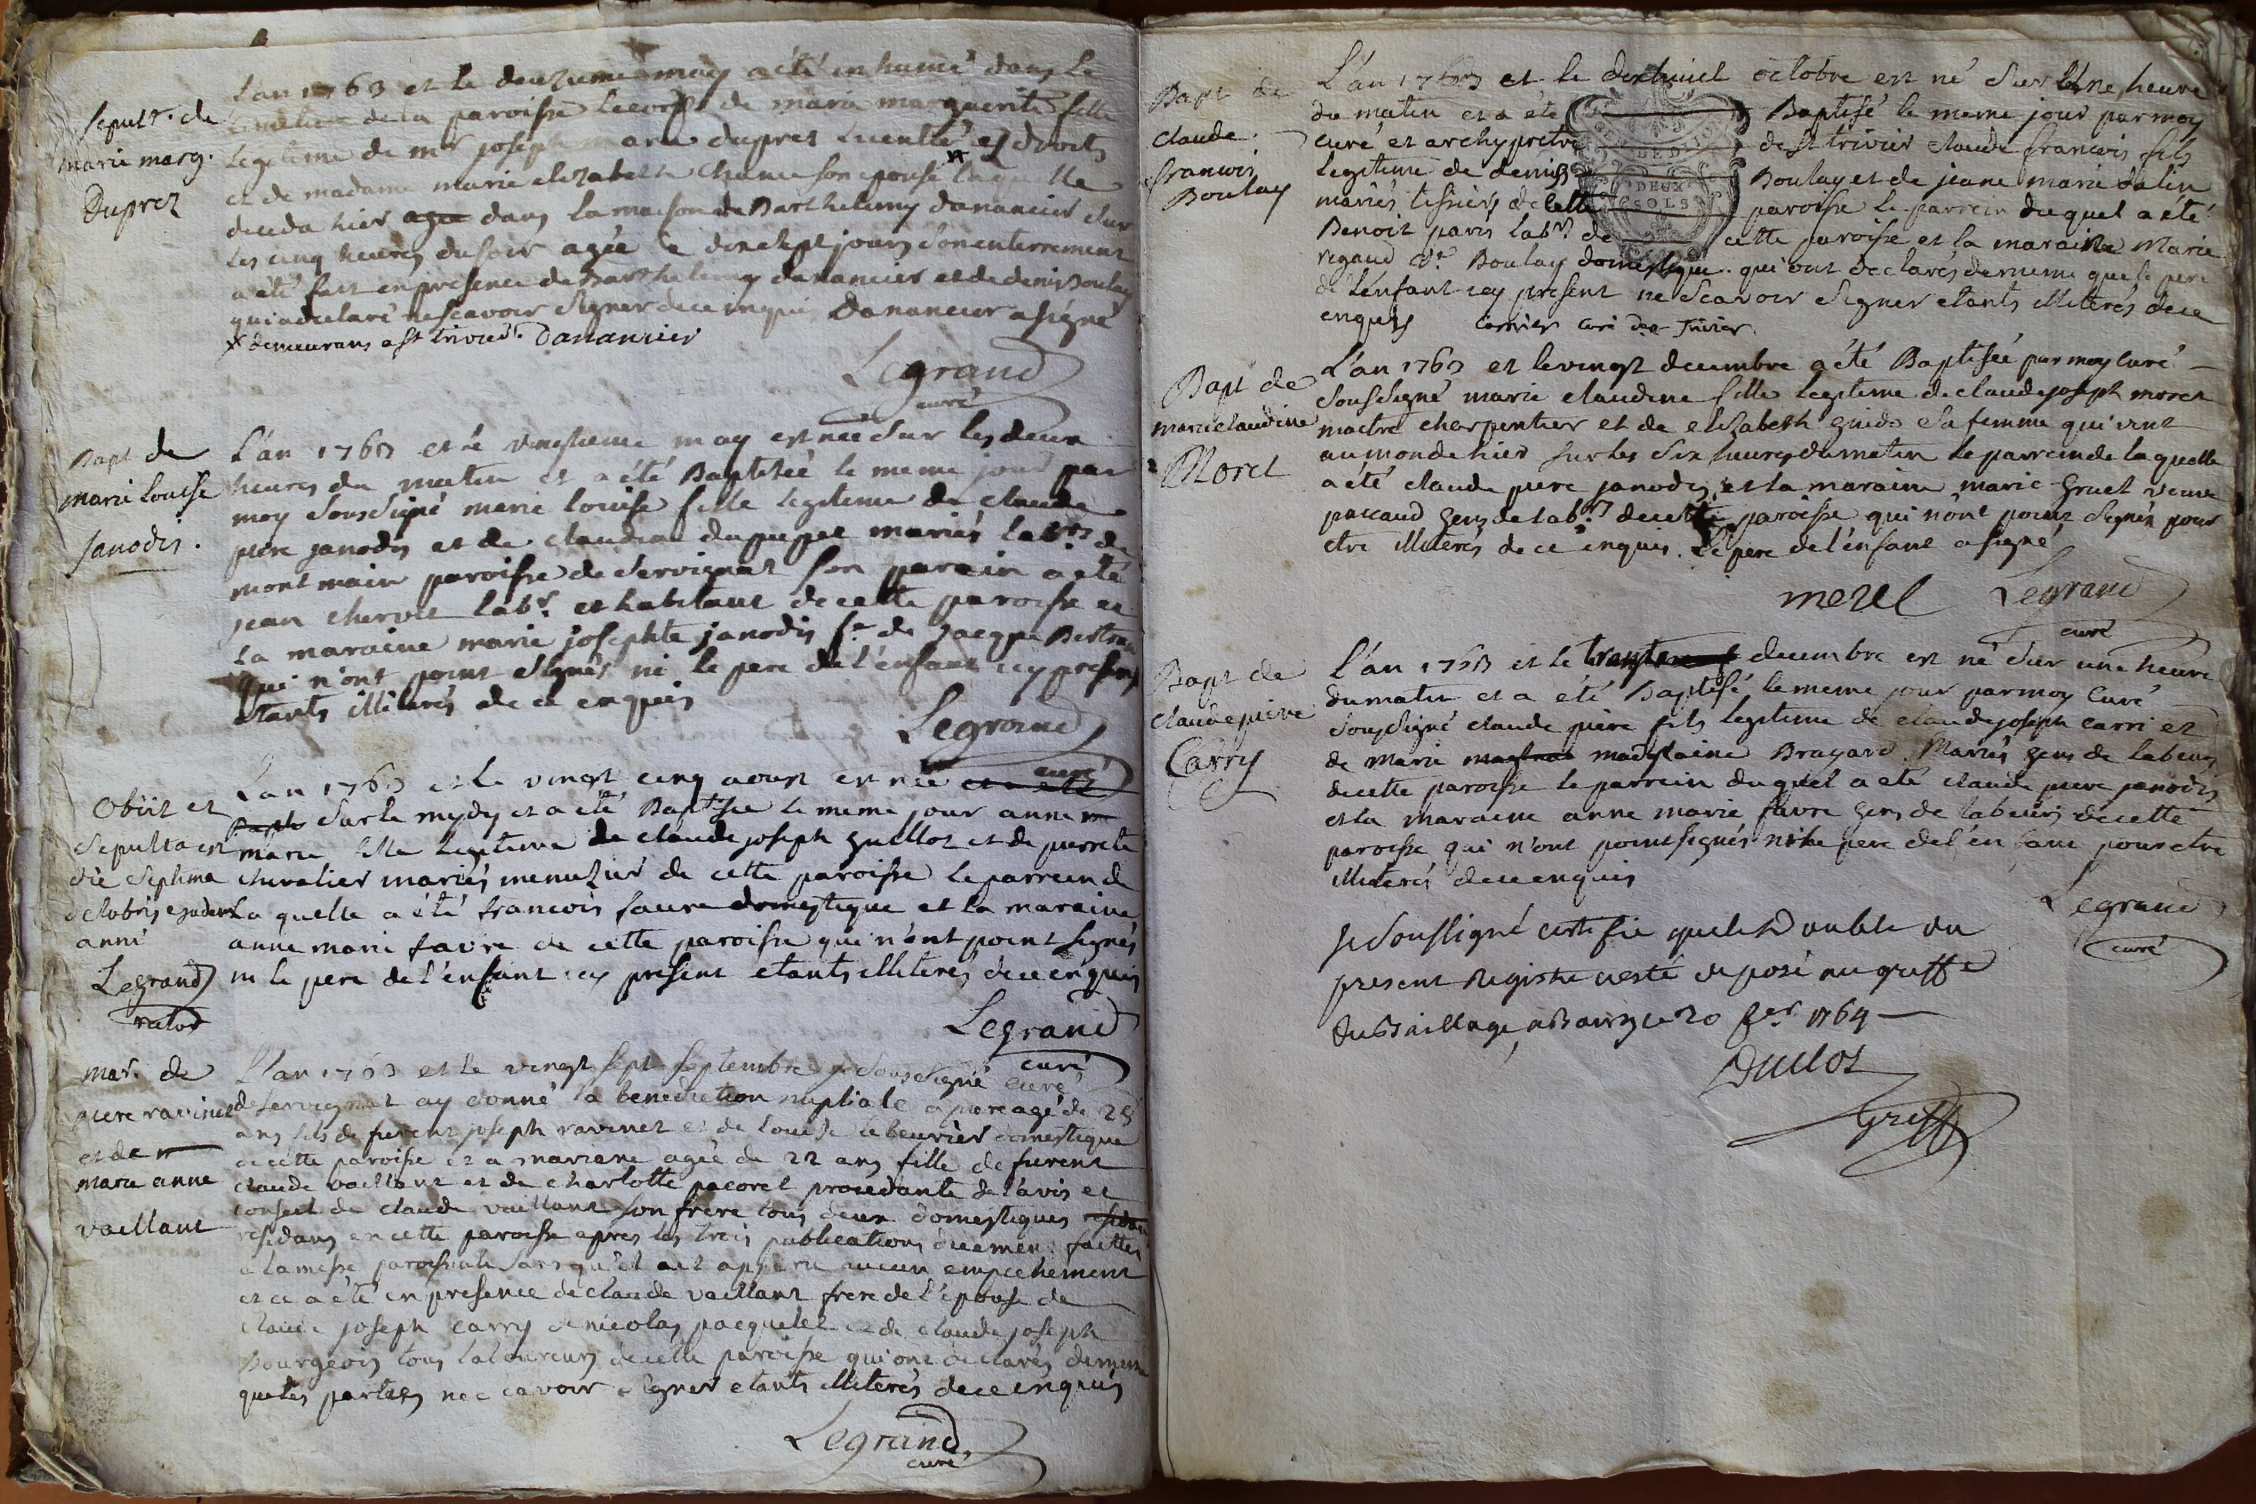 Sepultre. de
marie marg.
Duprez
L'an 1763 et le douzieme may a été inhumé dans le
cimetiere de la paroisse le corps de marie marguerite fille
legitime de mr joseph marie duprez es droits
et de madame marie elizabeth Chanu son epouse laquelle
deceda hier agee dans la maison de Barthelemy danancier sur
les cinq heures du soir agée de dix sept jours son enterrement
a été fait en presence de Barthelemy danancier et de denis Boulay
qui a declaré ne scavoir signer de ce enquis Danancier a signé
x demeurans a st trivier Danancier
Legrand
curé
Bapt de
marie louise
Janodis.
L'an 1763 et le vingtieme may est née sur les deux
heures du matin et a été Baptisée le meme jour par
moy soussigné marie louise fille legitime de claude
piere janodis et de claudine dupuget mariés labrs de
montmain paroisse de Servignat son parain a été
jean chervet labr. et habitant de cette paroisse et
la maraine marie josephte janodis fe de Jacque
qui n'ont point signés ni le pere de l'enfant icy present
etants illiterés de ce enquis
Legrand
curé
Obiit et
Sepulta est
die septima
octobris ejusdem
anni
Legrand
rator
L'an 1763 et le vingt cinq aoust est née et a été
Bapti sur le mydy et a été Baptisée le meme jour anne m
marie fille legitime de claude joseph guillot et de pierrete
chevalier mariés menuzier de cette paroisse le parrein de
la quelle a été francois faure domestique et la maraine
anne marie favre de cette paroisse qui n'ont point signés
ni le pere de l'enfant icy present etants illiterés de ce enquis
Legrand
curé
mar. de
piere ravinet
et de m
marie anne
vaillant
L'an 1763 et le vingt sept septembre je soussigné curé
de Servignat ay donné la benediction nuptiale a piere agé de 25
ans fils de furent joseph ravinet et de louise lebeurier domestique
de cette paroisse et a mariane agée de 22 ans fille de furent
claude vaillant et de charlotte pacoret procedante de l'avis et
conseil de claude vaillant son frere tous deux domestiques residan
residans en cette paroisse apres les trois publications duement faittes
a la messe paroissiale sans qu'il ait apparu aucun empechement
et ce a été en presence de claude vaillant frere de l'epouse de
claude joseph carry de nicolas pacquelet et de claude joseph
Bourgeois tous laboureurs de cette paroisse qui ont declarés de meme
que les parties ne scavoir signer etants illiterés de ce enquis
Legrand
curé
Bapt de
claude
francois
Boulay
L'an 1763 et le dixhuict octobre est né sur une heure
du matin et a été Baptisé le meme jour par moy
curé et archyprêtre de St trivier claude francois fils
legitime de denis Boulay et de jeane marie dalin
mariés tissiers de cette paroisse le parrein duquel a été
Benoit paris labr. de cette paroisse et la maraine Marie
regaud de. Boulay domestique qui ont declarés de meme que le pere
de l'enfant icy present ne scavoir signer etants illiterés de ce
enquis curé de st trivier
DEUX
SOLS
Bapt de
marie claudine
Moret
L'an 1763 et le vingt decembre a été Baptisée par moy curé
soussigné marie claudine fille legitime de claude joseph moret
maitre charpentier et de elisabeth guido sa femme qui vint
au monde hier sur les six heures du matin le parrein de laquelle
a été claude piere janodis et la maraine marie gruel veuve
paccaud gens de labr. de cette paroisse qui n'ont point signés pour
etre illiterés de ce enquis. Le pere de l'enfant a signé
morel Legrand
curé
Bapt de
claude piere
Carry
L'an 1763 et le trente decembre est né sur une heure
du matin et a été Baptisé le meme jour par moy curé
soussigné claude piere fils legitime de claude joseph carri et
de marie madelaine Brayard Mariés gens de labeurs
de cette paroisse le parrein duquel a été claude piere janodis
et la maraine anne marie favre gens de labeurs de cette
paroisse qui n'ont point signés ni le pere de l'enfant pour etre
illiterés de ce enquis
Legrand
curé
Je soussigné certifie que le Double du
present Registre a esté deposé au greffe
du Bailliage a Bourg le 20 fer. 1764
Duclos
Greff